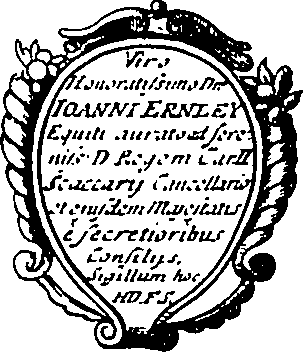 Viro
Honoratissimo Dn
IOANNI ERNLEY
Equiti aurato ad sere-
niss D Regem Car II
Scaccarij Cancellario
et ejusdem Majestatis
è secretioribus
Consilijs,
Sigillum hoc
HD.F.S.